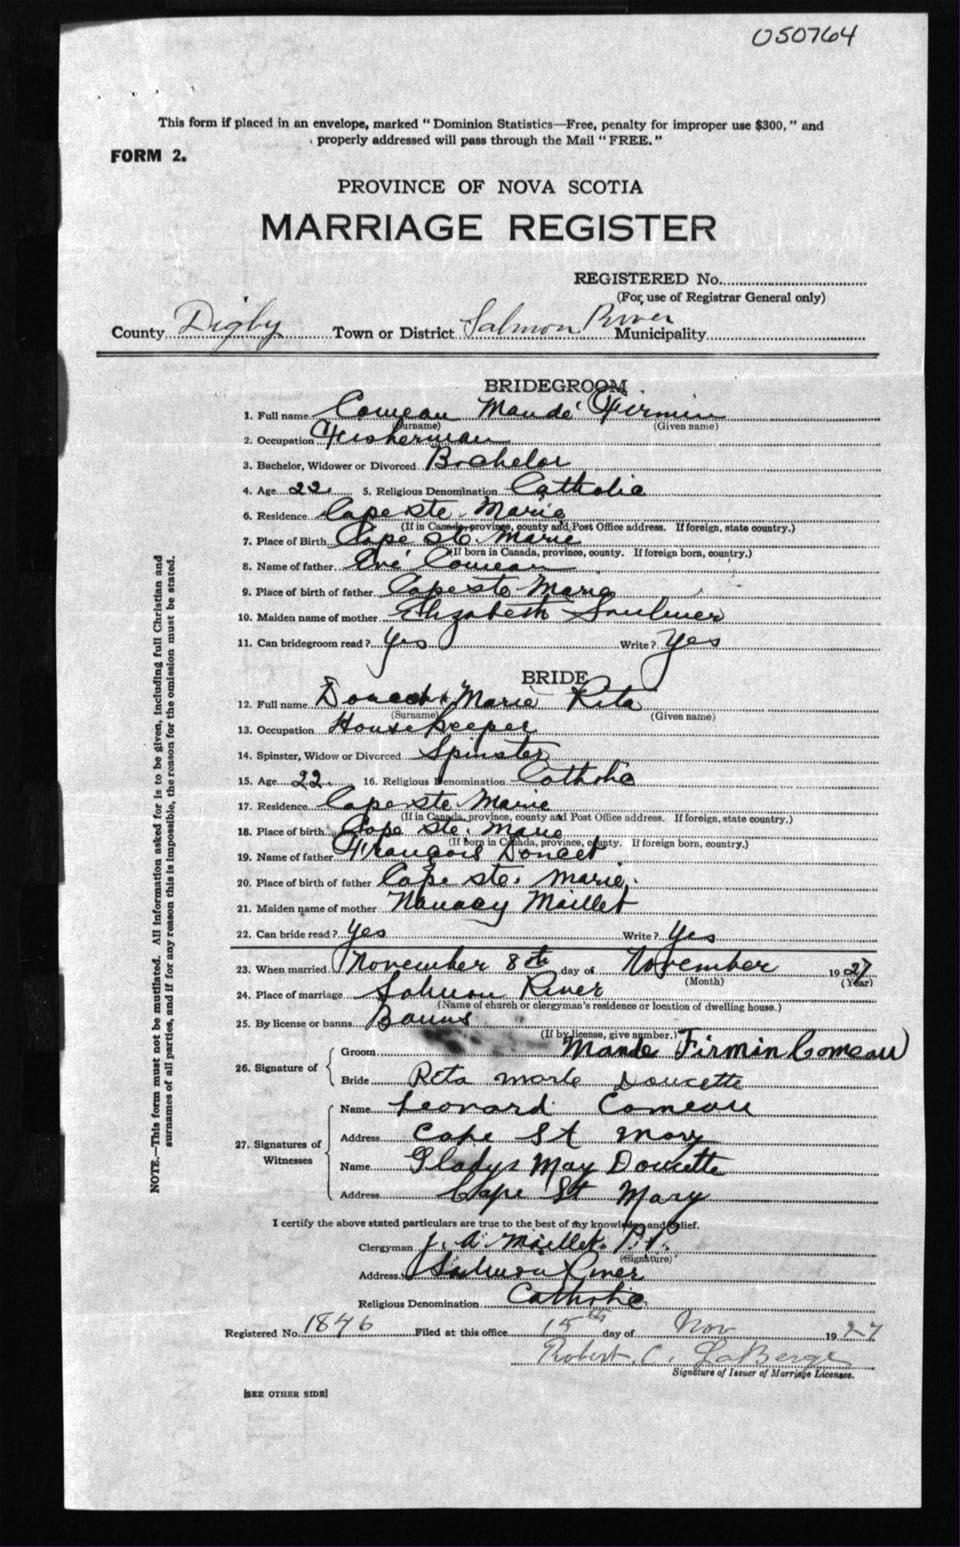 050764
This form if placed in an envelope, marked "Dominion Statistics—Free, penalty for improper use $300," and
properly addressed will pass through the Mail "FREE."
FORM 2.
PROVINCE OF NOVA SCOTIA
MARRIAGE REGISTER
REGISTERED No.
(For use of Registrar General only)
County Digby Town or District Salmon River Municipality
BRIDEGROOM
1. Full name Comeau Mandé Firmin
(Surname) (Given name)
2. Occupation Fisherman
3. Bachelor, Widower or Divorced Bachelor
4. Age 22 5. Religious Denomination Catholic
6. Residence Cape ste. Marie
(If in Canada, province, county and Post Office address. If foreign, state country.)
7. Place of Birth Cape ste. Marie
(If born in Canada, province, county. If foreign born, country.)
8. Name of father Comeau
9. Place of birth of father Cape ste Marie
10. Maiden name of mother Elizabeth Saulnier
11. Can bridegroom read? Yes Write? Yes
BRIDE
12. Full name Doucet Marie Rita
(Surname) (Given name)
13. Occupation Housekeeper
14. Spinster, Widow or Divorced Spinster
15. Age 22 16. Religious Denomination Catholic
17. Residence Cape ste. Marie
(If in Canada, province, county and Post Office address. If foreign, state country.)
18. Place of birth Cape ste. Marie
(If born in Canada, province, county. If foreign born, country.)
19. Name of father François Doucet
20. Place of birth of father Cape ste. Marie
21. Maiden name of mother Maillet
22. Can bride read? Yes Write? Yes
23. When married November 8th day of November 1927
(Month) (Year)
24. Place of marriage Salmon River
(Name of church or clergyman's residence or location of dwelling house.)
25. By license or banns Banns
(If by license, give number.)
26. Signature of
Groom Mande Firmin Comeau
Bride Rita Marie Doucette
27. Signatures of Witnesses
Name Leonard Comeau
Address Cape St Mary
Name Gladys May Doucette
Address Cape St Mary
I certify the above stated particulars are true to the best of my knowledge and belief.
Clergyman J. A. Maillet P.P.
(Signature)
Address Salmon River
Religious Denomination Catholic
Registered No. 1846 Filed at this office 15th day of Nov 1927
Robert C. LaBerge
Signature of Issuer of Marriage Licenses.
[SEE OTHER SIDE]
NOTE.—This form must not be mutilated. All information asked for is to be given, including full Christian and
surnames of all parties, and if for any reason this is impossible, the reason for the omission must be stated.